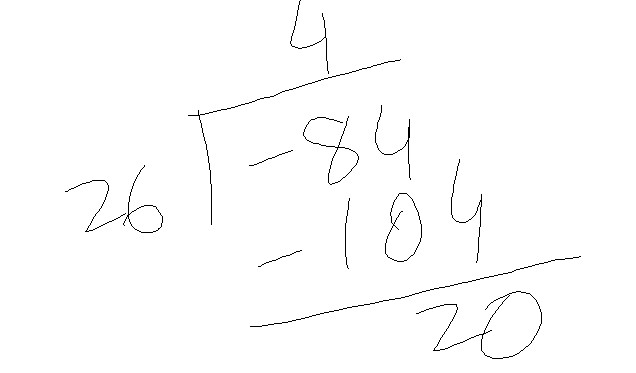 4
26 -84
-104
20